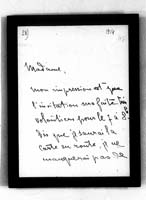 1914
Madame,
mon impression est que
l'invitation
volontiers pour le 7 à 8h
Dès que j'aurai la
carte en route, je ne
manquerai pas de